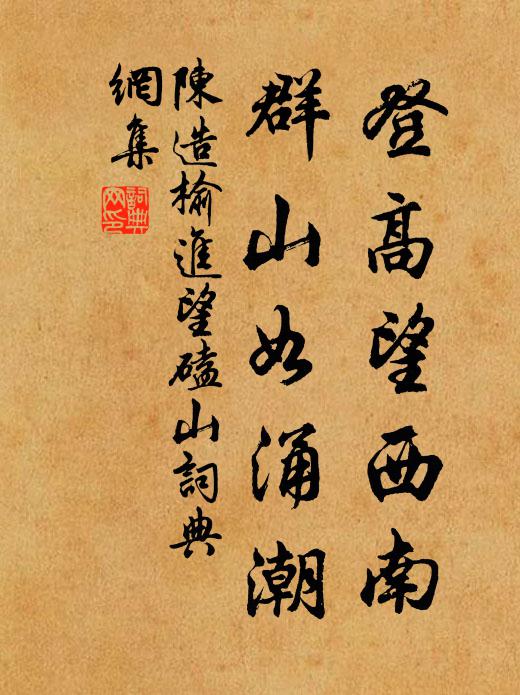 登高望西南
群山如涌潮
陳造榆進望磕山詞典
網集
詞典
網印